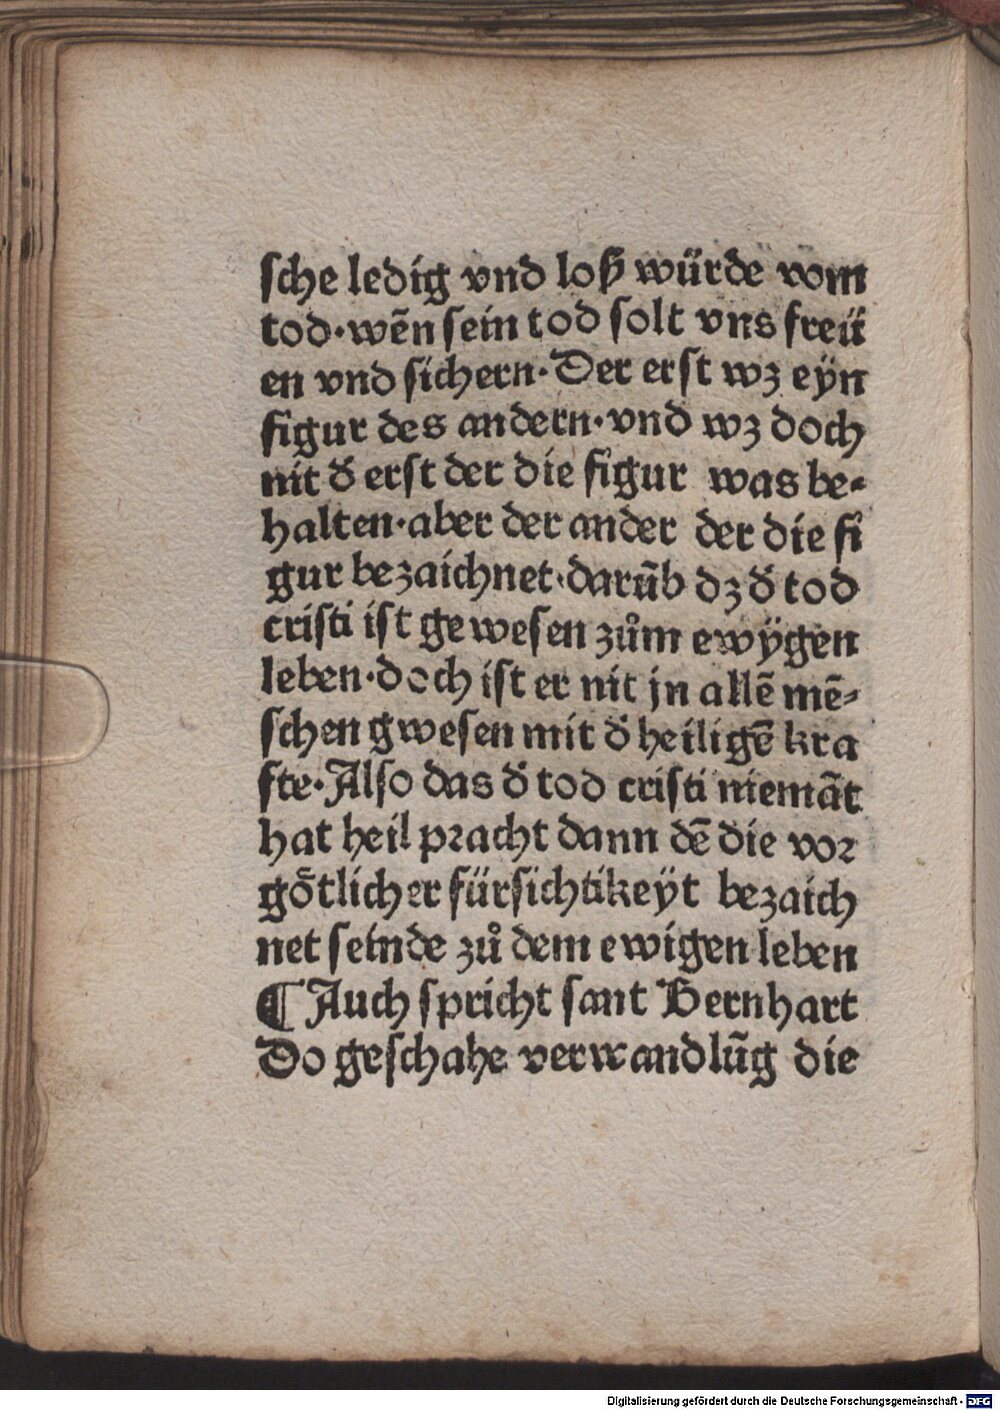 sche ledig vnd loß würde vom
tod·wēn sein tod solt vns freü
en vnd sichern·Der erst wz eÿn
figur des andern·vnd wz doch
nit d̄ erst der die figur was be⸗
halten·aber der ander der die fi
gur bezaichnet·darūb dz d̄ tod
cristi ist gewesen zům ewÿgen
leben·doch ist er nit jn allē mē⸗
schen gwesen mit d̄ heiligē kra
fte·Also das d̄ tod cristi niemāt
hat heil pracht dann dē die vor
gȫtlicher fürsichtikeÿt bezaich
net seinde zů dem ewigen leben
¶ Auch spricht sant Bernhart
Do geschahe verwandlūg die
Digitalisierung gefördert durch die Deutsche Forschungsgemeinschaft - DFG